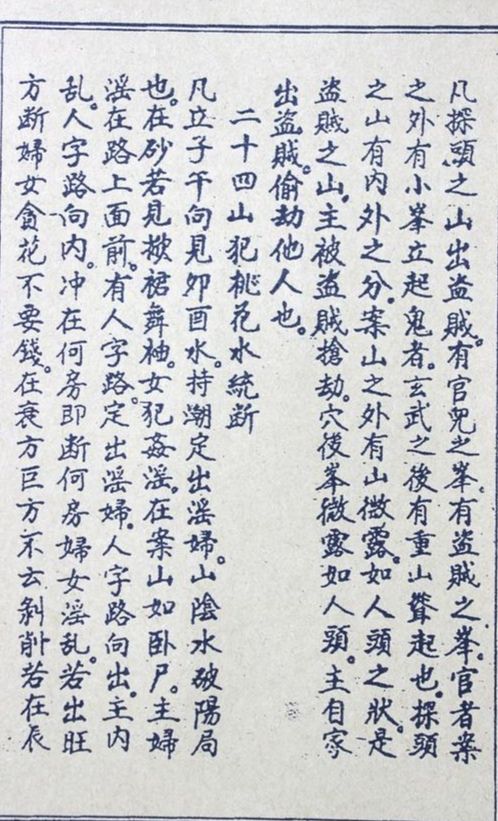 凡探頭之山出盗賊。有官鬼之峯。有盗賊之峯。官者案
之外有小峯立起鬼者。玄武之後有重山聳起也。探頭
之山有内外之分。案山之外有山微露。如人頭之狀。是
盗賊之山。主被盗賊搶劫。穴後峯微露如人頭。主自家
出盗賊。偷劫他人也。
二十四山犯桃花水統斷
凡立子午向見卯酉水。持潮定出淫婦。山陰水破陽局
也。在砂若見掀裙舞袖。女犯姦淫。在案山如卧尸。主婦
淫在路上面前。有人字路。定出淫婦。人字路向出。主内
乱。人字路向内。冲在何房即断何房婦女淫乱。若出旺
方断婦女貪花不要錢。在衰方巨方不云剝削若在辰